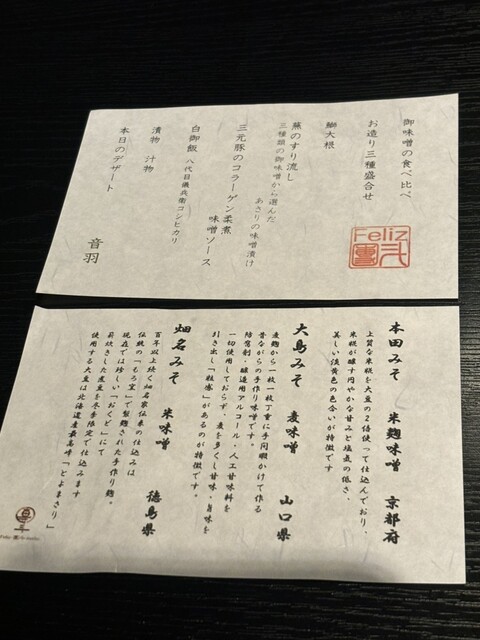 御味噌の食べ比べ
お造り三種盛合せ
鰤大根
蕪のすり流し
三種類の御味噌から選んだ
あさりの味噌漬け
三元豚のコラーゲン柔煮
味噌ソース
白御飯 八代目儀兵衛コシヒカリ
漬物 汁物
本日のデザート
音羽
Feliz
本田みそ 米麹味噌 京都府
上質な米糀を大豆の2倍使って仕込んでおり、
米糀が醸す円やかな甘みと塩気の低さ、
美しい淡黄色の色合いが特徴です
大島みそ 麦味噌 山口県
麦麹から一枚一枚丁重に手間暇かけて作る
昔ながらの手作り味噌です。
防腐剤・醸造用アルコール・人工甘味料を
一切使用しておらず、麦を多くし甘味、旨味を
引き出し「粒感」があるのが特徴です。
畑名みそ 米味噌 徳島県
百年以上続く畑名家伝来の仕込みは
伝統の「もろ室」で製麹された手作り麹。
現在では珍しい「おくど」にて
薪炊きした煮豆を冬季限定で仕込みます
使用する大豆は北海道産最高峰「とよまさり」